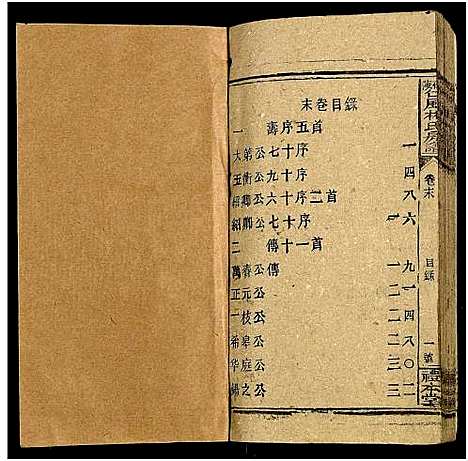 末卷目錄
一 壽序五首
大弟公七十序 一
玉衡公九十序 四
紹卿公六十序二首 八
紹卿公七十序 一六
二 傳十一首
萬春公傳 一九
正元公 二一
一枝公 二四
希皋公 二八
华庭公 三〇
錫之公 三二
風林氏房譜
卷末
目錄
一
禮本堂